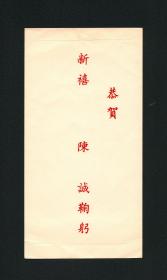 恭賀
新禧　陳　誠鞠躬